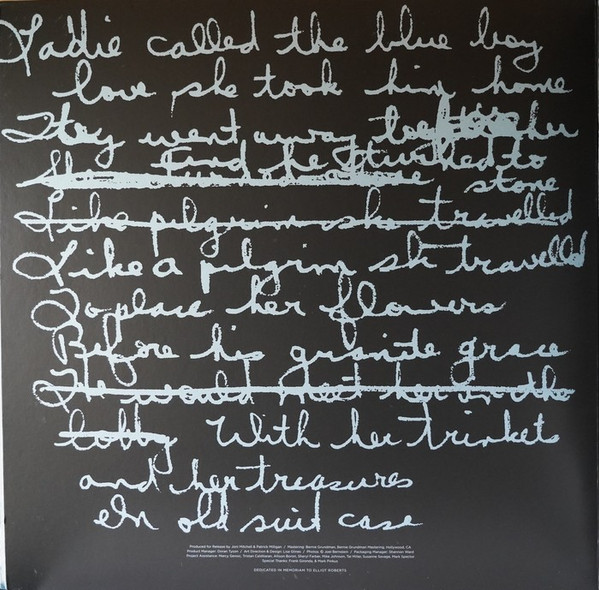 Ladie called the blue boy
love she took him home
They went away together
And he turned to
She stone
Like pilgrim she travelled
Like a pilgrim sh travelled
To place her flowers
Before his granite grace
He would meet her in the
lobby With her trinkets
and her treasures
In old suit case
Produced for Release by Joni Mitchell & Patrick Milligan / Mastering: Bernie Grundman, Bernie Grundman Mastering, Hollywood, CA
Product Manager: Dorian Tyson / Art Direction & Design: Lisa Glines / Photos: © Joel Bernstein / Packaging Manager: Shannon Ward
Project Assistance: Marcy Gensic, Tristan Allison Boron, Sheryl Farber, Mike Johnson, Tal Miller, Susanne Savage, Mark Spector
Special Thanks: Frank Gironda, & Mark Pinkus
DEDICATED IN MEMORIAM TO ELLIOT ROBERTS